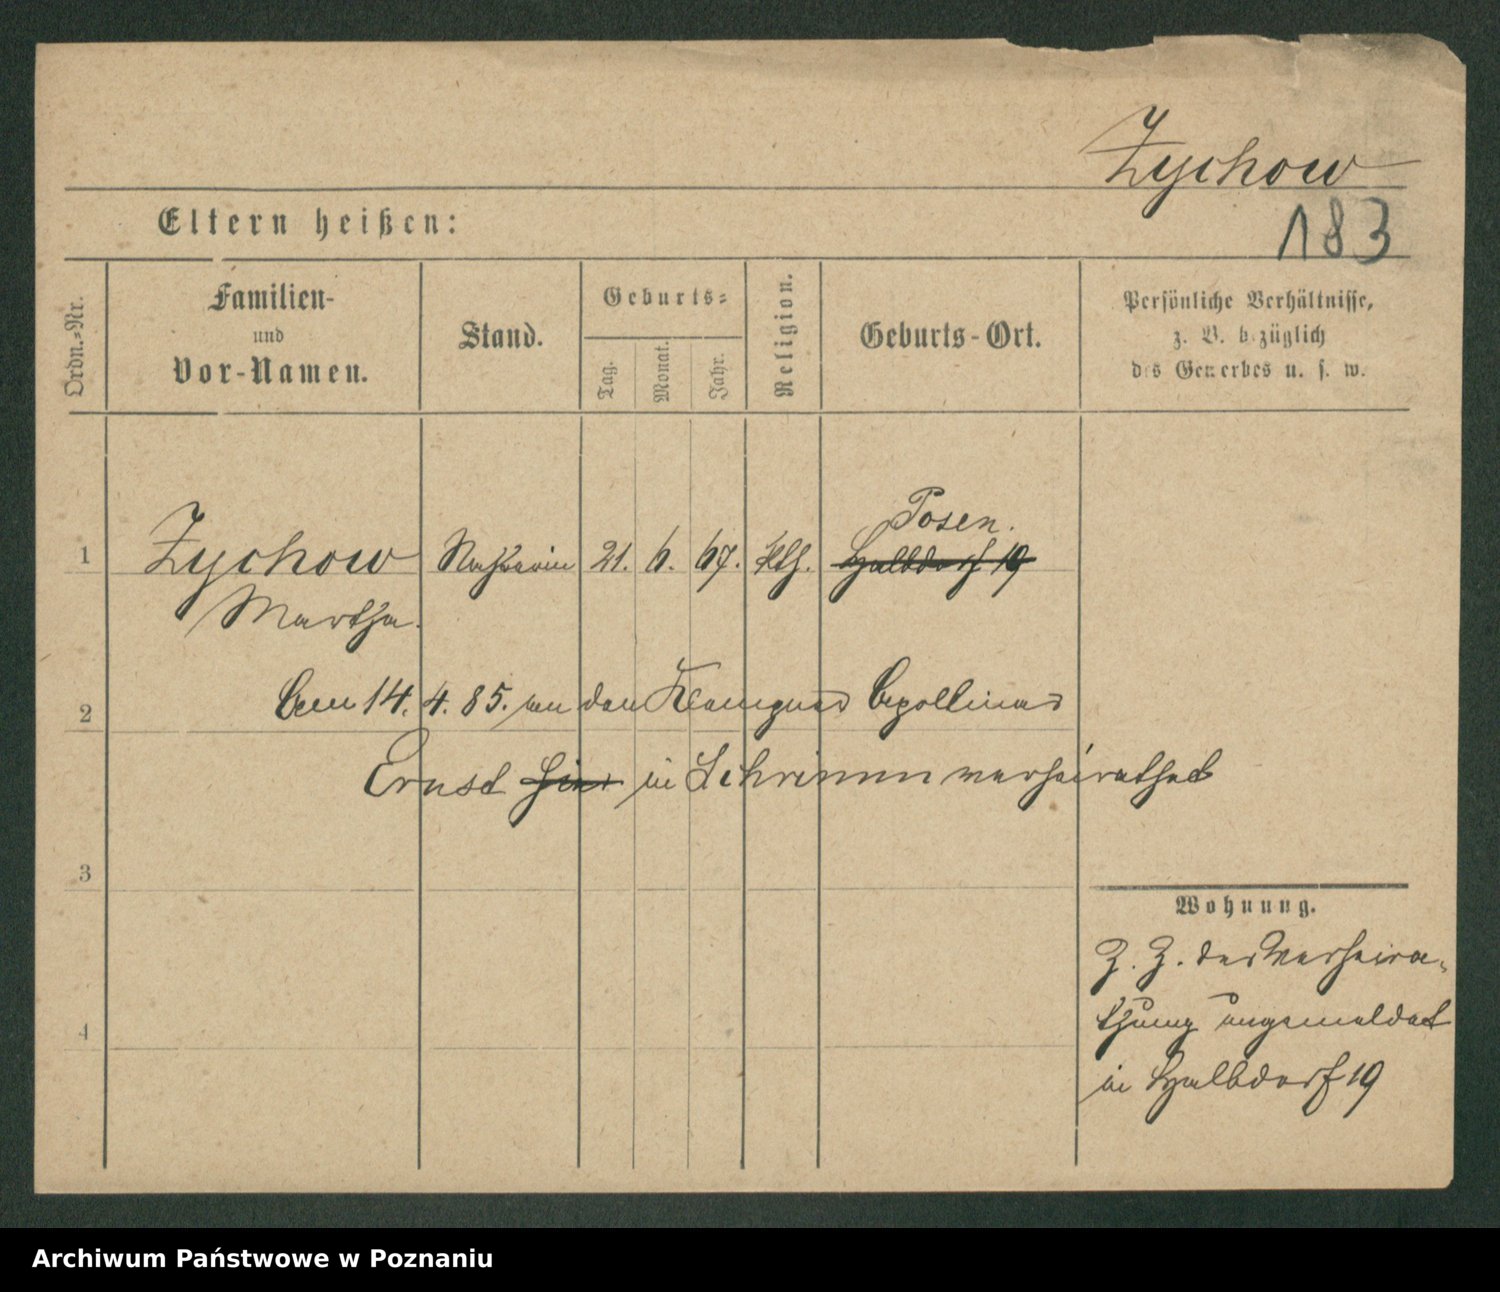 Zychow
183
Eltern heißen:
Ordn.-Nr.
Familien-
und
Vor-Namen.
Stand.
Geburts-
Tag.
Monat.
Jahr.
Religion.
Geburts-Ort.
Persönliche Verhältnisse,
z. B. bezüglich
des Gewerbes u. s. w.
Posen.
1 Zychow Nähterin 21. 6. 67. kth. Halbdorf 19
Martha.
2 Am 14. 4. 85. an den Klempner Apollinar
Ernst hier in Schrimm verheirathet
3
Wohnung.
Z. Z. der Verheira-
thung angemeldet
in Halbdorf 19
4
Archiwum Państwowe w Poznaniu